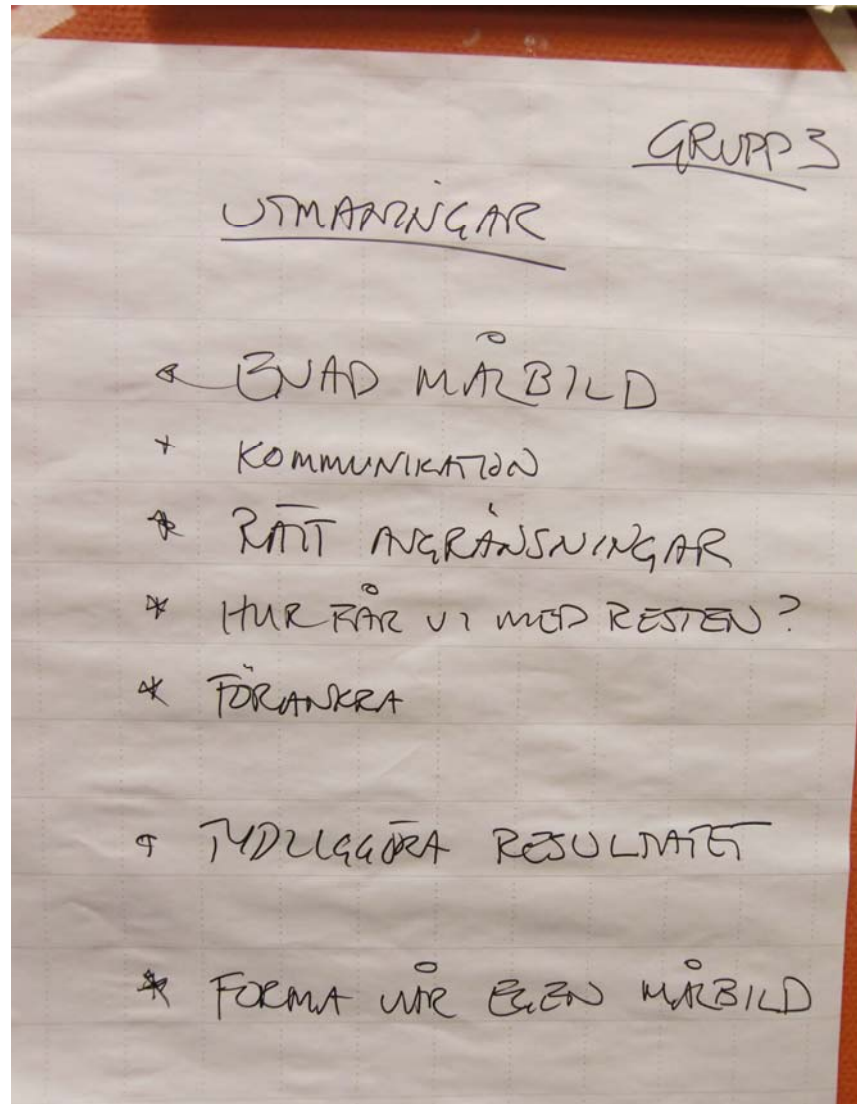 GRUPP 3
UTMANINGAR
* ENAD MÅLBILD
* KOMMUNIKATION
* RÄTT AVGRÄNSNINGAR
* HUR FÅR VI MED RESTEN?
* FÖRANKRA
* TYDLIGGÖRA RESULTATET
* FORMA VÅR EGEN MÅLBILD